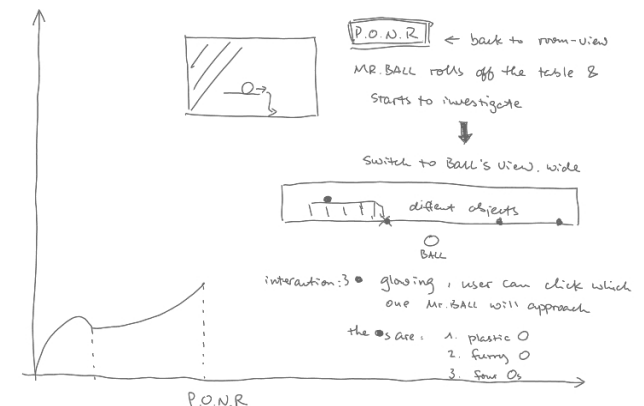 P.O.N.R ← back to room-view
MR. BALL rolls off the table &
starts to investigate
Switch to Ball's view. wide
different objects
BALL
interaction: 3 ● glowing, user can click which
one Mr. BALL will approach
the ●s are: 1. plastic O
2. furry O
3. four Os
P.O.N.R